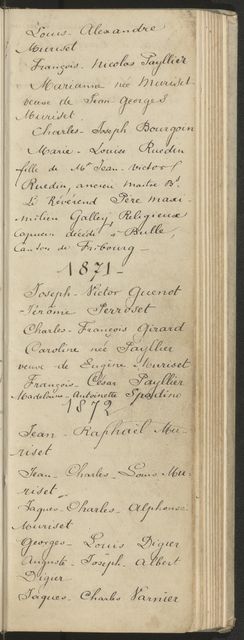 Louis Alexandre
Muriset
François Nicolas Payllier
Marianne née Muriset
veuve de Jean Georges
Muriset
Charles Joseph Bourgoin
Marie-Louise Ruedin
fille de Mr Jean-Victor
Ruedin, ancien maître Bl.
Le Révérend Père Maxi-
milien Galley, Religieux
capucin décédé à Bulle,
Canton de Fribourg -
1871 -
Joseph-Victor Guenot
Jérôme Perroset
Charles-François Girard
Caroline née Payllier
veuve de Eugène Muriset
François César Payllier
Madelaine-Antoinette
1872
Jean-Raphaël Mu-
riset
Jean-Charles-Louis Mu-
riset
Jaques-Charles Alphonse
Muriset
Georges-Louis Digier
Auguste-Joseph-Albert
Digier
Jaques-Charles Varnier